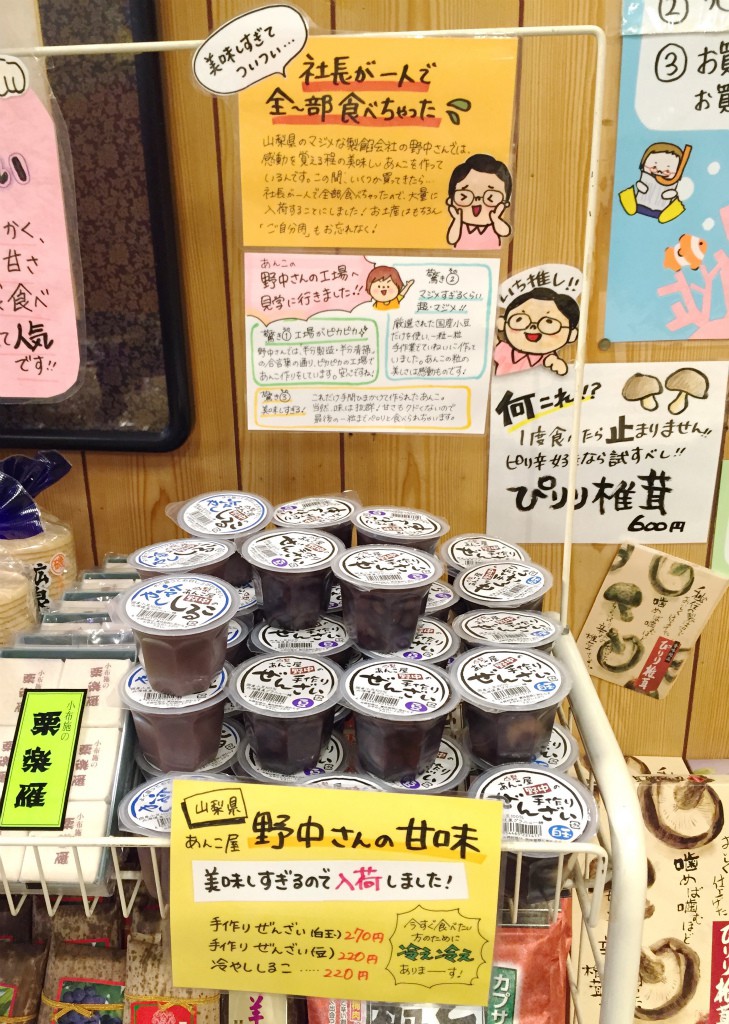 美味しすぎて
ついつい…
社長が一人で
全〜部食べちゃった
山梨県のマジメな製餡会社の野中さんでは、
感動を覚える程の美味しいあんこを作って
いるんです。この間、いくつか買ってきたら…
社長が一人で全部食べちゃったので、大量に
入荷することにしました!お土産はもちろん
「ご自分用」もお忘れなく♪
あんこの
野中さんの工場へ
見学に行きました!!
驚き①工場がピカピカ
野中さんでは、半分製造・半分清掃
の合言葉の通り、ピカピカの工場で
あんこ作りをしています。安心ですね♪
驚き②
マジメすぎるくらい
超・マジメ!!
厳選された国産小豆
だけを使い、一粒一粒
手作業でていねいに作って
いました。あんこの粒の
美しさは感動ものです♪
驚き③
美味しすぎる♪
これだけ手間ひまかけて作られたあんこ。
当然、味は抜群♪甘さもクドくないので
最後の一粒までペロリと食べられちゃいます。
いち推し!!
何これ!?
1度食べたら止まりません!!
ピリ辛好きなら試すべし!!
ぴりり椎茸
600円
②
③お買
お買
かく、
甘さ
食べ
て人気
です!!
広泉
冷やし
しるこ
あんこ屋
野中の
手作り
ぜんざい
白玉
小布施の
栗楽雁
山梨県
あんこ屋
野中さんの甘味
美味しすぎるので入荷しました!
手作りぜんざい(白玉)270円
手作りぜんざい(豆)220円
冷やししるこ……220円
今すぐ食べたい
方のために
冷え冷え
ありまーす!
噛めば噛むほど
ぴりり椎茸
カプサ